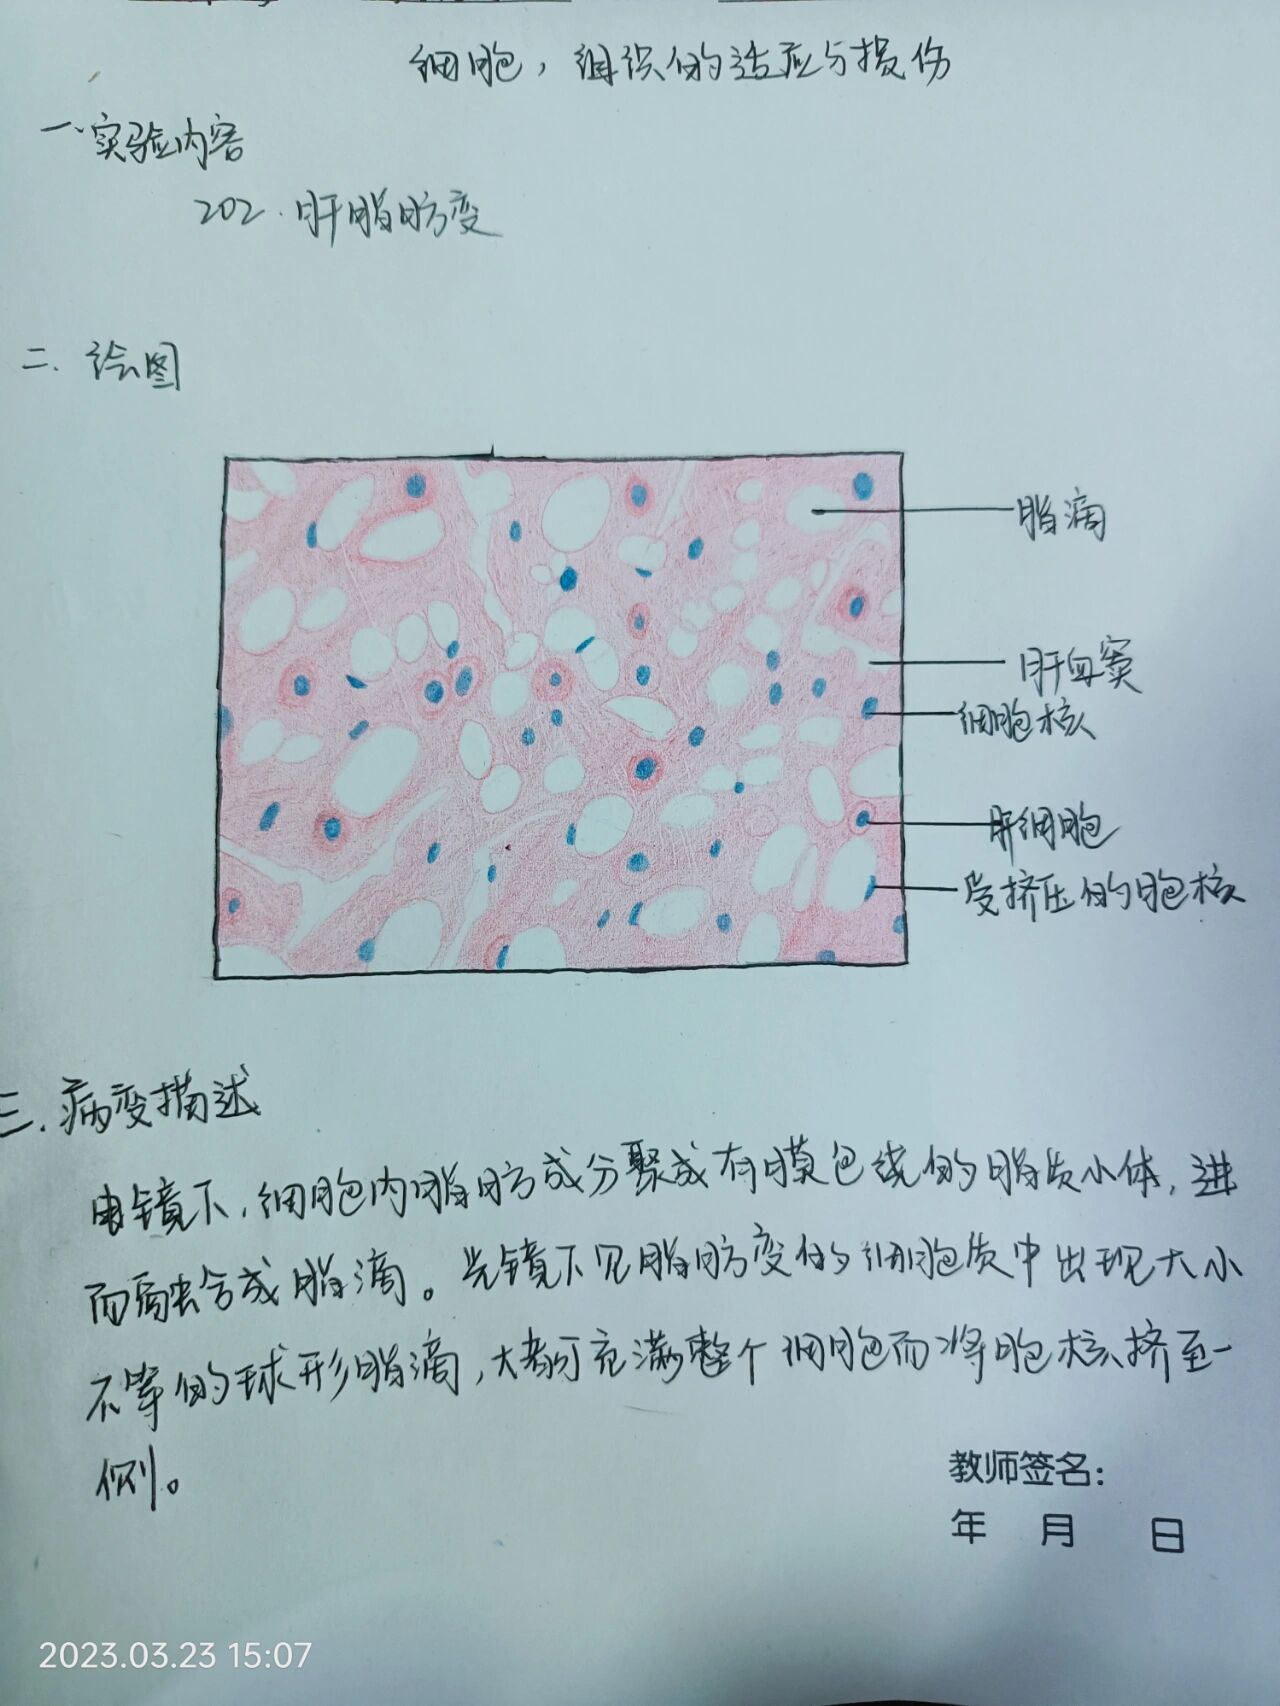 细胞,组织的适应与损伤
一、实验内容
202.肝脂肪变
二.绘图
脂滴
肝血窦
细胞核
肝细胞
受挤压的胞核
三.病变描述
电镜下,细胞内脂肪成分聚成有膜包绕的脂质小体,进
而融合成脂滴。光镜下见脂肪变的细胞质中出现大小
不等的球形脂滴,大者可充满整个细胞而将胞核挤至一
侧。
教师签名:
年 月 日
2023.03.23 15:07